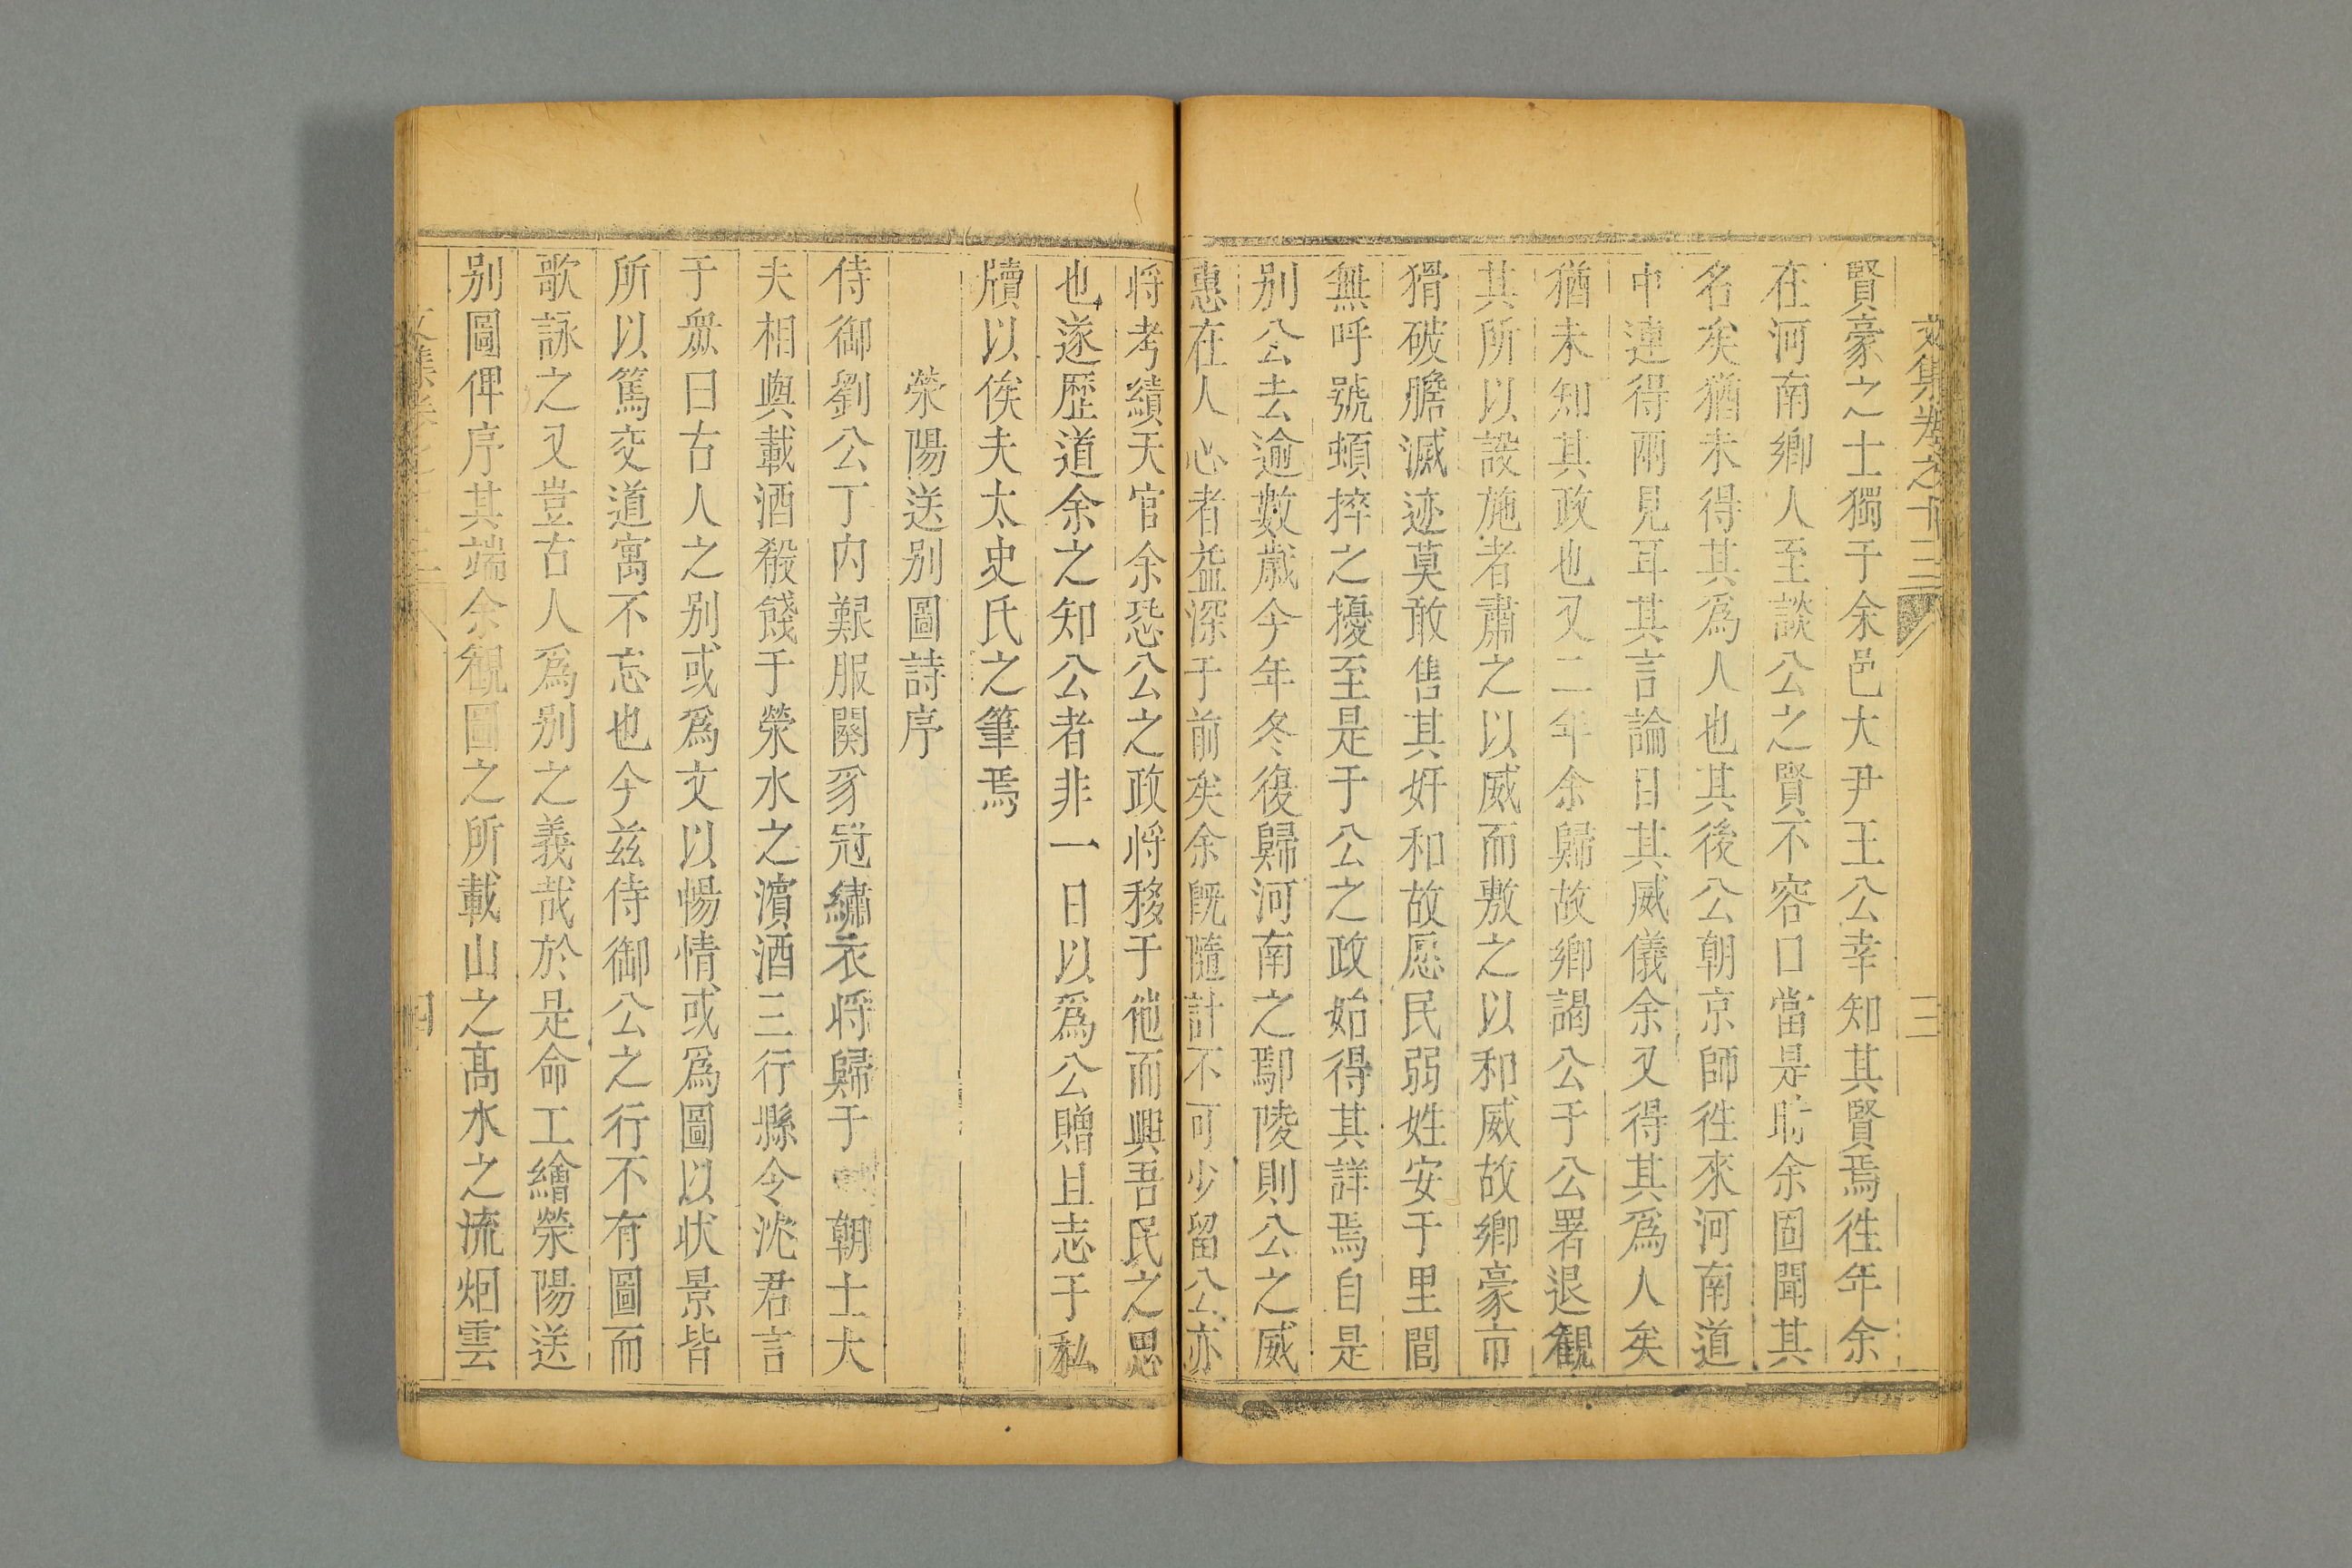 文集卷之十三
三
賢豪之士獨于余邑大尹王公幸知其賢焉徃年余
在河南鄉人至談公之賢不容口當是時余固聞其
名矣猶未得其爲人也其後公朝京師徃來河南道
中連得兩見耳其言論目其威儀余又得其爲人矣
猶未知其政也又二年余歸故鄉謁公于公署退觀
其所以設施者肅之以威而敷之以和威故鄉豪市
猾破膽滅迹莫敢售其奸和故愿民弱姓安于里閭
無呼號頓捽之擾至是于公之政始得其詳焉自是
别公去逾數歲今年冬復歸河南之鄢陵則公之威
惠在人心者益深于前矣余旣隨計不可少留公亦
将考績天官余恐公之政将移于他而興吾民之思
也遂歷道余之知公者非一日以爲公贈且志于私
牘以俟夫太史氏之筆焉
滎陽送别圖詩序
侍御劉公丁内艱服闋豸冠繡衣将歸于朝士大
夫相與載酒殽餞于滎水之濵酒三行縣令沈君言
于衆曰古人之别或爲文以暢情或爲圖以状景皆
所以篤交道寓不忘也今兹侍御公之行不有圖而
歌詠之又豈古人爲别之義哉於是命工繪滎陽送
别圖俾序其端余觀圖之所載山之高水之流烟雲
四